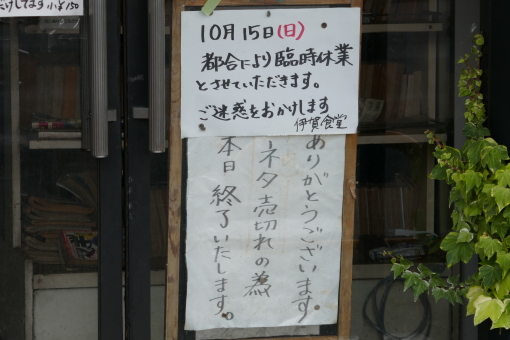 だけしてます 小¥150
10月15日(日)
都合により臨時休業
とさせていただきます。
ご迷惑をおかけします
伊賀食堂
ありがとうございます。
ネタ売切れの為
本日終了いたします。